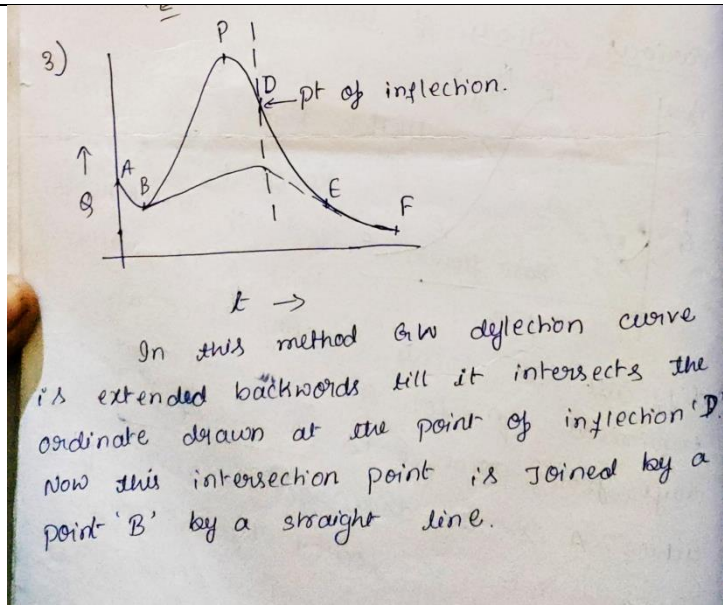 3)
P
D
← pt of inflection.
A
B
↑
Q
E
F
t →
In this method GW deflection curve
is extended backwords till it intersects the
ordinate drawn at the point of inflection 'D'.
Now this intersection point is Joined by a
point 'B' by a straight line.